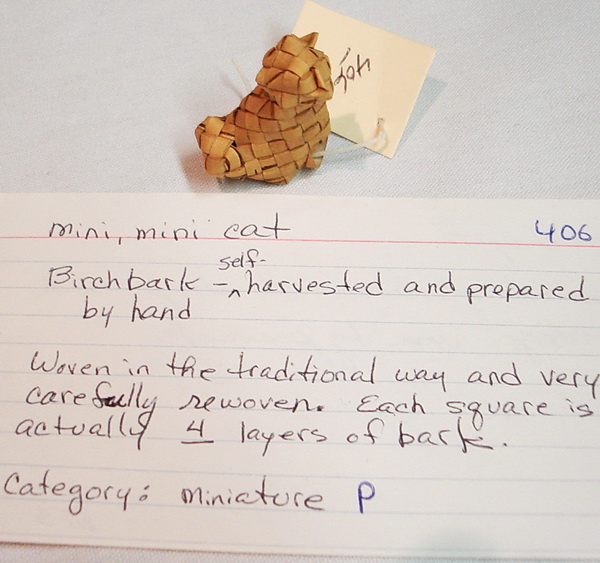 406
mini, mini cat 406
Birchbark - self-harvested and prepared
by hand
Woven in the traditional way and very
carefully rewoven. Each square is
actually 4 layers of bark.
Category: miniature P